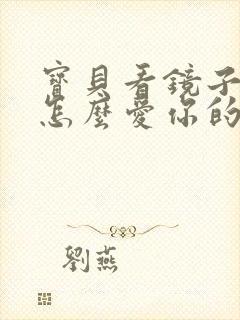 寶貝看鏡子
怎麼愛你的
劉燕